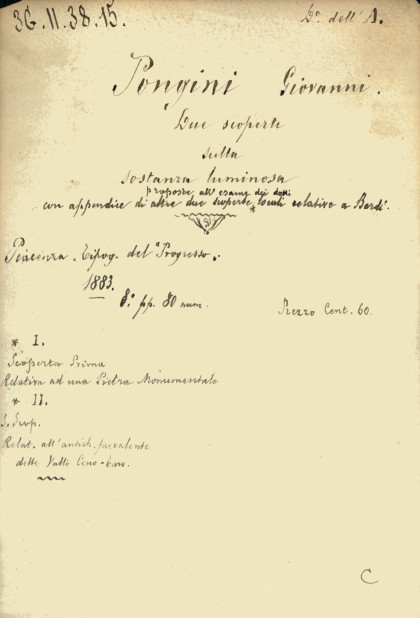 36.II.38.15.
D.º dell'A.
Pongini Giovanni.
Due scoperte
sulla
sostanza luminosa
proposte all'esame dei dotti
con appendice di altre due scoperte * locali relative a Bardi.
Piacenza, Tipog. del "Progresso".
1883.
8.º pp. 80 num.
Prezzo Cent. 60.
* I.
Scoperta Prima
Relativa ad una Pietra Monumentale
* II.
Relat. all'antich. prevalente
delle Valli Ceno-Taro.
C